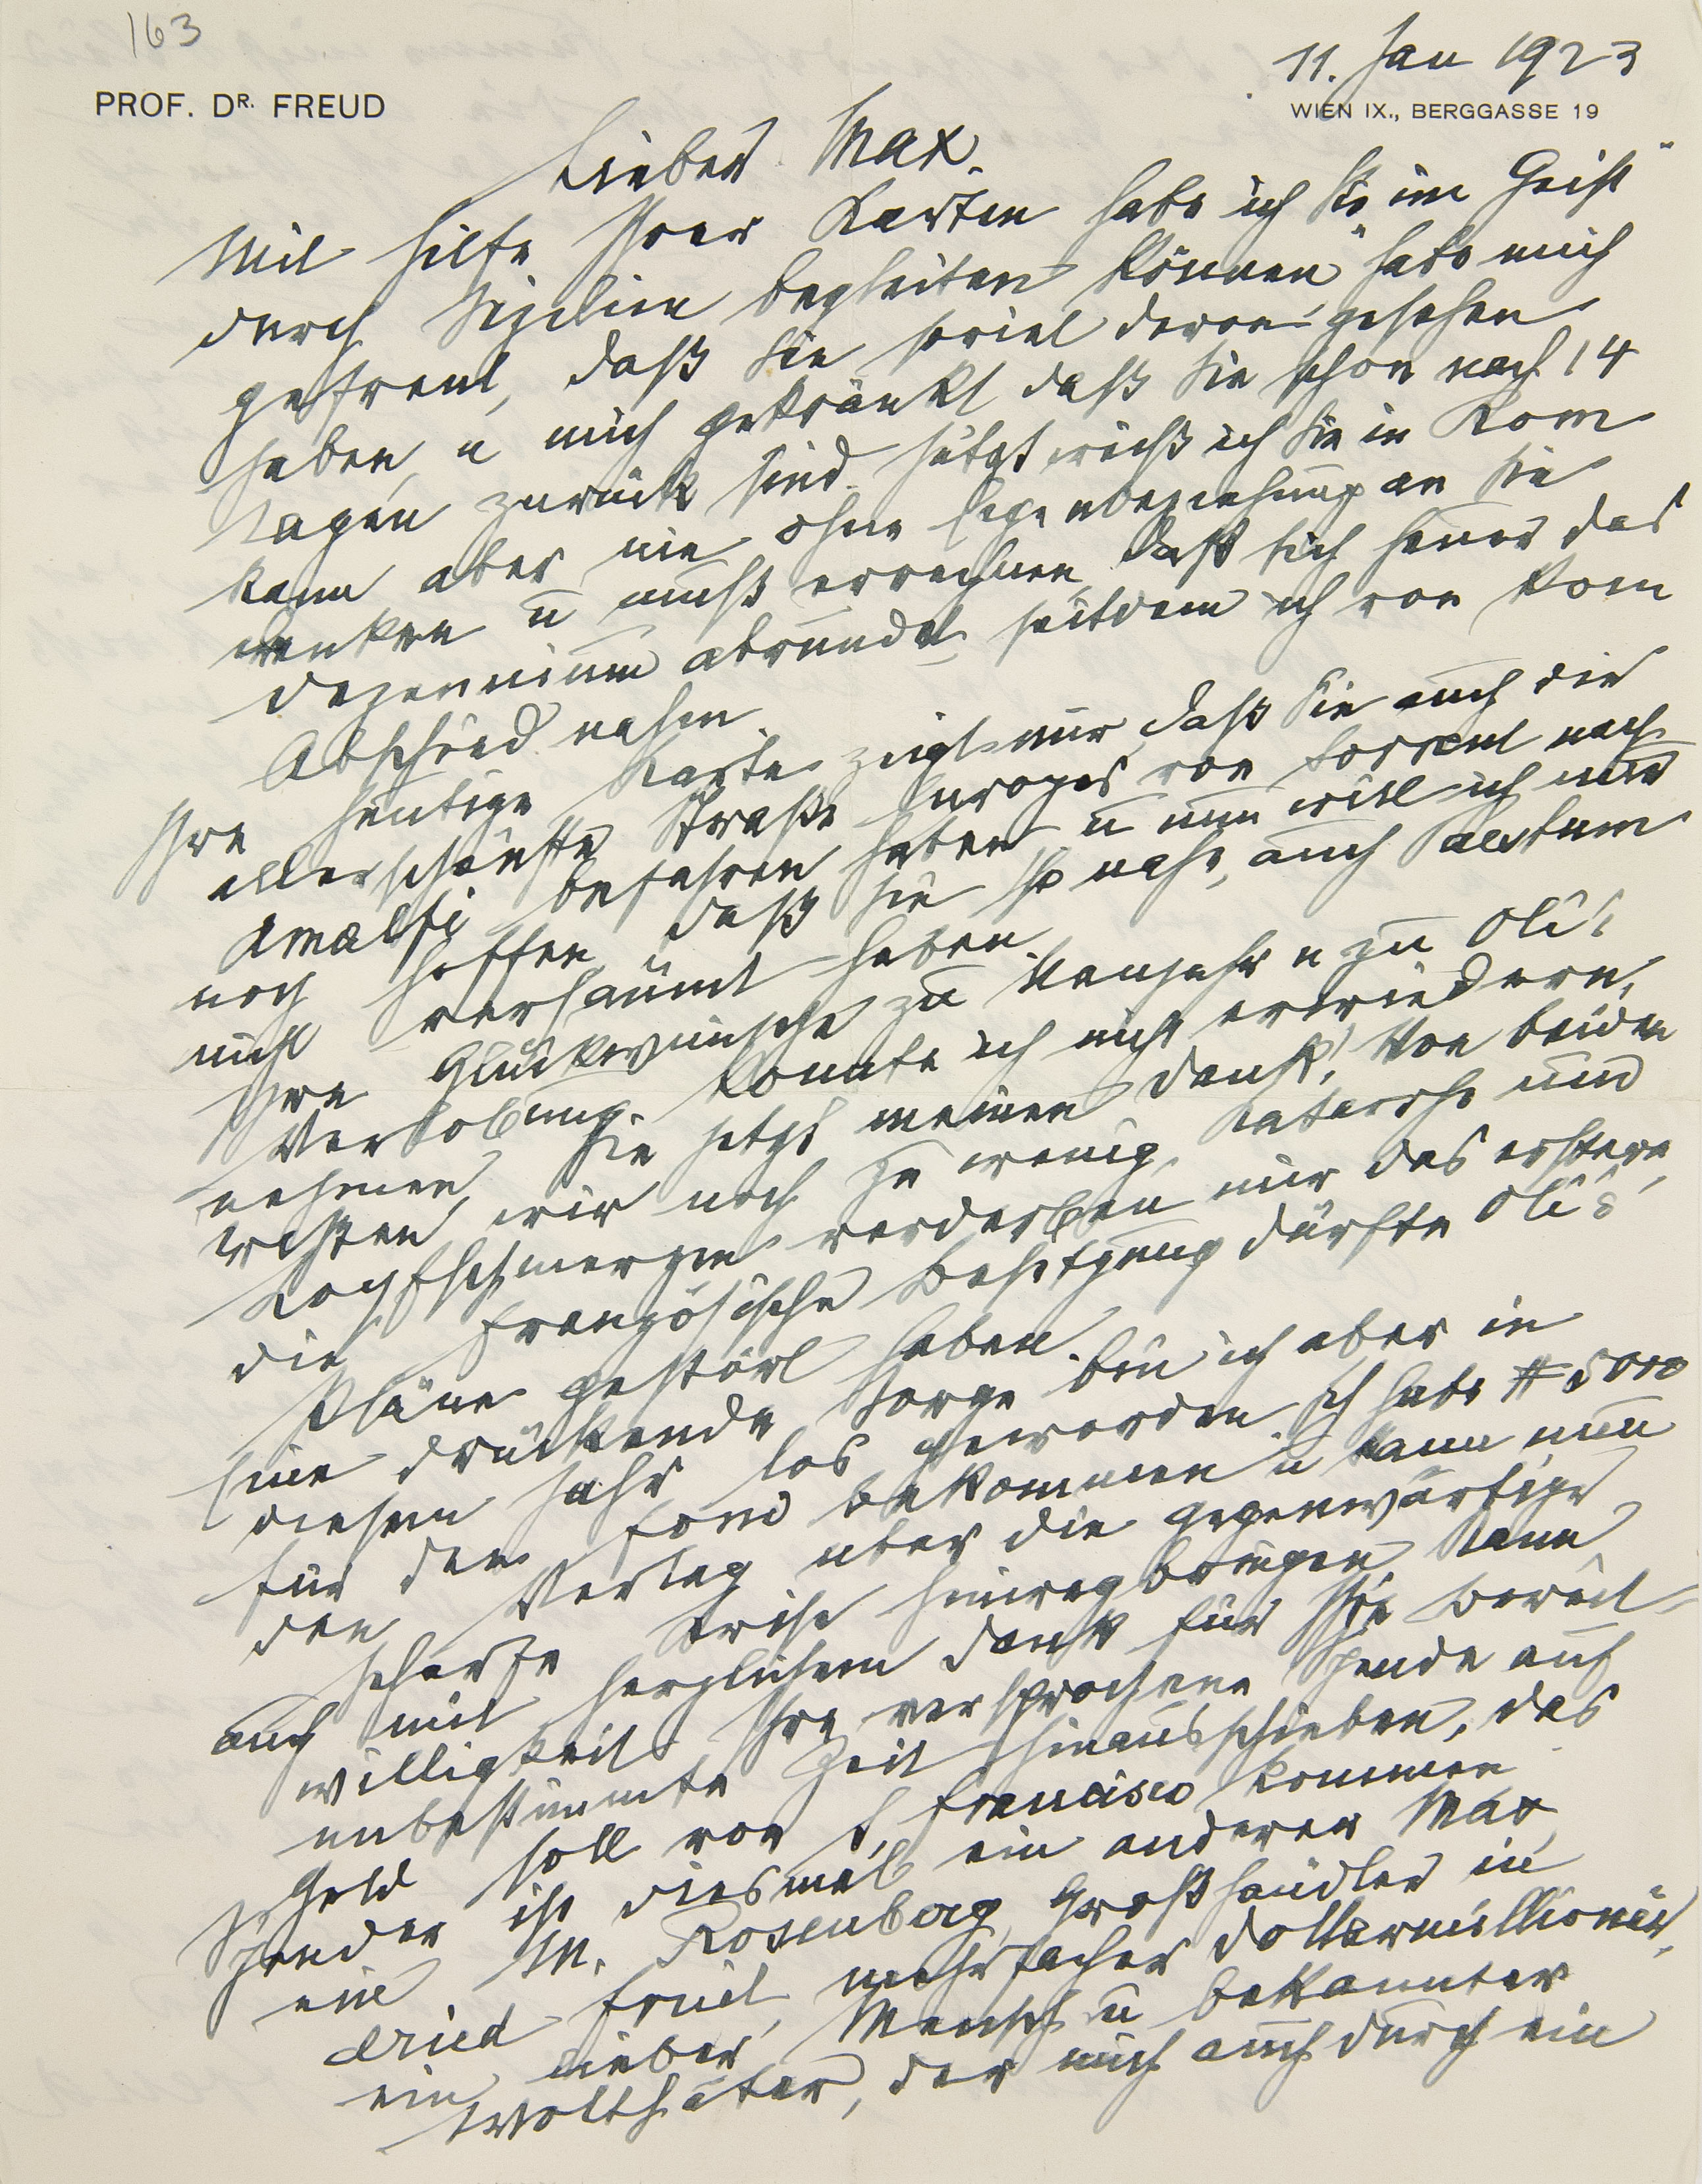 163
11. Jan 1923
PROF. DR. FREUD
WIEN IX., BERGGASSE 19
Lieber Max.
Mit Hilfe Ihrer Karten habe ich Sie „im Geist"
durch Sizilien begleiten können habe mich
gefreut, daß Sie soviel davon gesehen
haben, u mich gekränkt daß Sie schon nach 14
Tagen zurück sind. Jetzt weiß ich Sie in Rom
kann aber nie ohne an Sie
denken u muß errechnen, daß sich heuer das
Dezennium abrundet, seitdem ich von Rom
Abschied nahm.
Ihre heutige Karte zeigt mir, daß Sie auch die
allerschönste Straße Europas von Sorrent nach
Amalfi befahren haben u nun will ich nur
noch hoffen, daß Sie so nahe, auch Paestum
nicht versäumt haben.
Ihre Glückwünsche zu Neujahr u zu Oli's
Verlobung konnte ich nicht erwiedern,
nehmen Sie jetzt meinen Dank! Von beiden
wissen wir noch zu wenig. Katarrhe und
Kopfschmerzen verdarben mir das erstere,
die französische Besetzung dürfte Oli's
Pläne gestört haben.
Eine drückende Sorge bin ich aber in
diesem Jahr los geworden. Ich habe # 5000
für den Fond bekommen u kann nun
den Verlag über die gegenwärtige
scharfe Krise hinwegbringen, kann
auch mit herzlichem Dank für Ihre Bereit-
willigkeit Ihre versprochene Spende auf
unbestimmte Zeit hinausschieben. Das
Geld soll von S. Francisco kommen
Spender ist diesmal ein anderer Max,
ein M. Rosenberg, Großhändler in
dried fruit, mehrfacher Dollarmillionär,
ein lieber Mensch u bekannter
Wolthäter, der mich auch durch ein